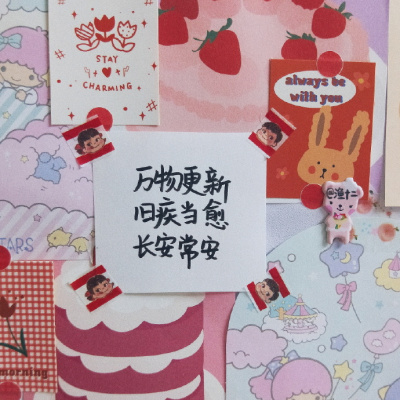 STAY
CHARMING
always be
with you
万物更新
旧疾当愈
长安常安
@渔十二
TARS
morning